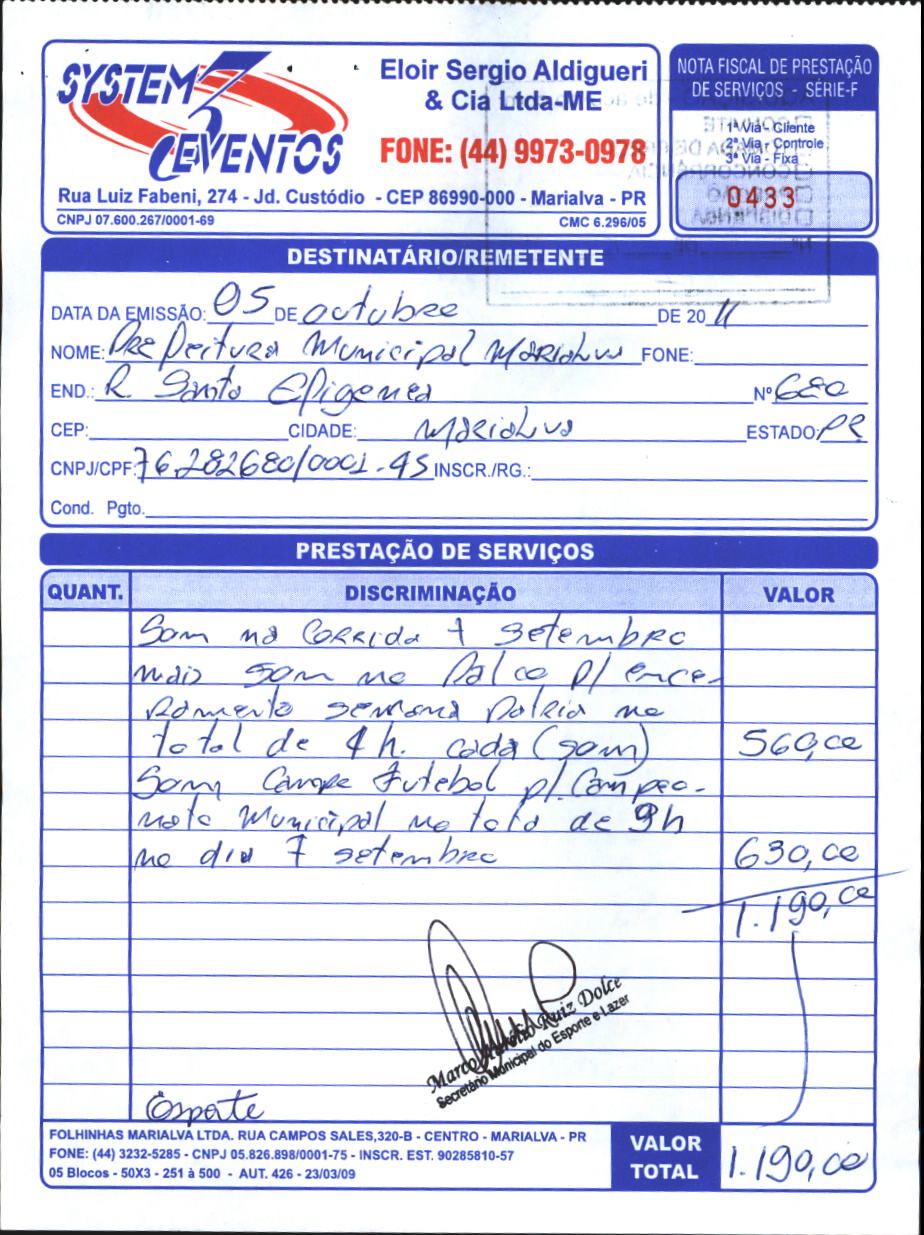 SYSTEM 3 EVENTOS
Eloir Sergio Aldigueri
& Cia Ltda-ME
FONE: (44) 9973-0978
Rua Luiz Fabeni, 274 - Jd. Custódio - CEP 86990-000 - Marialva - PR
CNPJ 07.600.267/0001-69 CMC 6.296/05
NOTA FISCAL DE PRESTAÇÃO
DE SERVIÇOS - SÉRIE-F
1ª Via - Cliente
2ª Via - Controle
3ª Via - Fixa
0433
DESTINATÁRIO/REMETENTE
DATA DA EMISSÃO: 05 DE octubre DE 2011
NOME: Prefeitura Municipal Marialva FONE:
END.: R. Santa Efigenea Nº 680
CEP: CIDADE: Marialva ESTADO: PR
CNPJ/CPF: 76.282680/0001-45 INSCR./RG.:
Cond. Pgto.
PRESTAÇÃO DE SERVIÇOS
QUANT. DISCRIMINAÇÃO VALOR
Som na Corrida 7 setembro
mais som no Palco p/ ence-
ramento semana patria no
total de 4 h. cada (som) 560,00
Som Campo Futebol p/. Campeo-
nato Municipal no toto de 9h
no dia 7 setembro 630,00
1.190,00
Marco Ruiz Dolce
Secretário Municipal do Esporte e Lazer
Esporte
FOLHINHAS MARIALVA LTDA. RUA CAMPOS SALES,320-B - CENTRO - MARIALVA - PR
FONE: (44) 3232-5285 - CNPJ 05.826.898/0001-75 - INSCR. EST. 90285810-57
05 Blocos - 50X3 - 251 à 500 - AUT. 426 - 23/03/09
VALOR
TOTAL 1.190,00